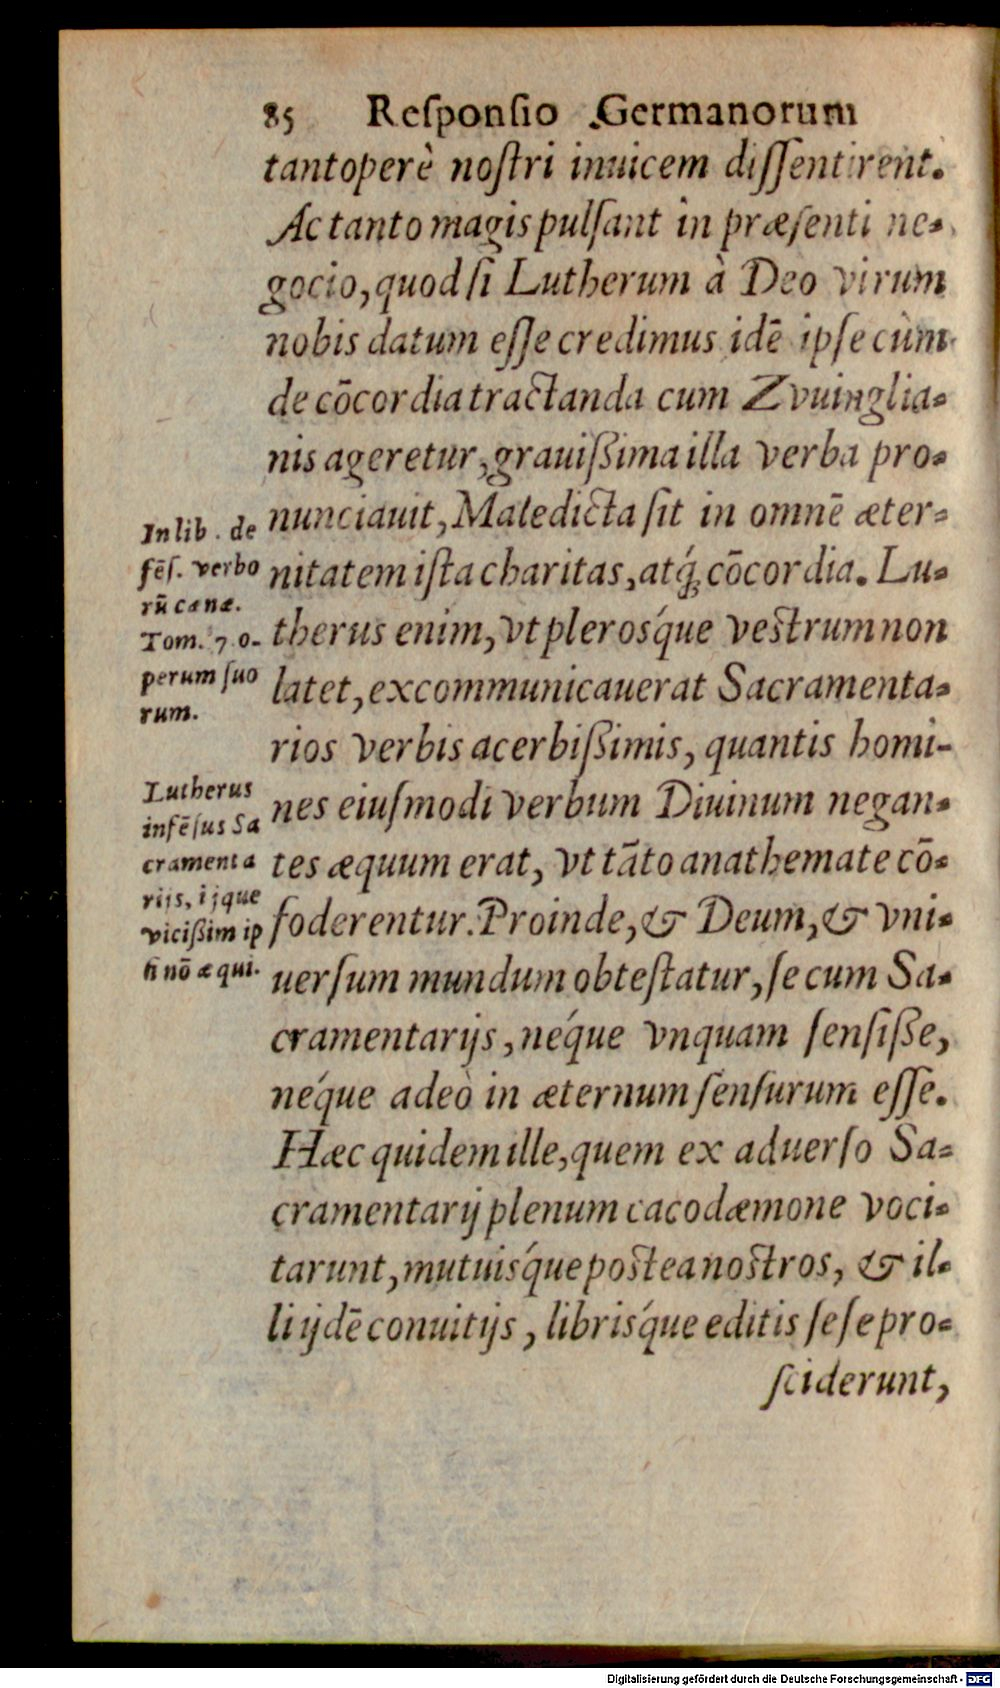 85 Reſponſio Germanorum
tantoperè noſtri inuicem diſſentirent.
Ac tanto magis pulſant in præſenti ne-
gocio, quod ſi Lutherum à Deo virum
nobis datum eſſe credimus idē ipſe cùm
de cōcordia tractanda cum Zvuinglia-
nis ageretur, grauißima illa verba pro-
nunciauit, Maledicta ſit in omnē æter-
nitatem iſta charitas, atq́; cōcordia. Lu-
therus enim, vt plerosq́ue veſtrum non
latet, excommunicauerat Sacramenta-
rios verbis acerbißimis, quantis homi-
nes eiuſmodi verbum Diuinum negan-
tes æquum erat, vt tāto anathemate cō-
foderentur. Proinde, & Deum, & vni-
uerſum mundum obteſtatur, ſe cum Sa-
cramentarijs, neq́ue vnquam ſenſiße,
neq́ue adeò in æternum ſenſurum eſſe.
Hæc quidem ille, quem ex aduerſo Sa-
cramentarij plenum cacodæmone voci-
tarunt, mutuisq́ue poſtea noſtros, & il-
li ijdē conuitijs, librisq́ue editis ſeſe pro-
ſciderunt,
In lib. de
fēſ. verbo
rū cænæ.
Tom. 7. o-
perum ſuo
rum.
Lutherus
infēſus Sa
cramenta
rijs, ijque
vicißim ip
ſi nō æqui.
Digitalisierung gefördert durch die Deutsche Forschungsgemeinschaft - DFG